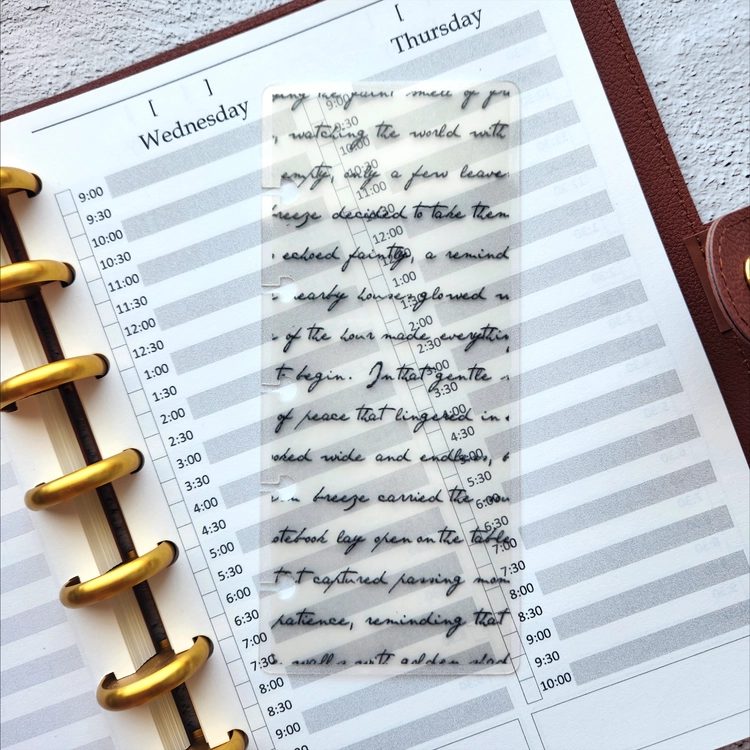 [ ]
Wednesday
[
Thursday
9:00
9:30
10:00
10:30
11:00
11:30
12:00
12:30
1:00
1:30
2:00
2:30
3:00
3:30
4:00
4:30
5:00
5:30
6:00
6:30
7:00
7:30
8:00
8:30
9:00
9:00
9:30
10:00
10:30
11:00
12:00
1:00
1:30
2:00
2:30
3:30
4:30
5:30
6:00
6:30
7:00
7:30
8:00
8:30
9:00
9:30
10:00
the faint smell of
, watching the world with
empty, only a few leave
breeze decided to take them
echoed faintly, a remind
nearby houses glowed
of the hour made everythin
to begin. In that gentle
of peace that lingered in
wide and endless,
breeze carried the
otebook lay open on the table
t captured passing mom
patience, reminding that
walls with golden